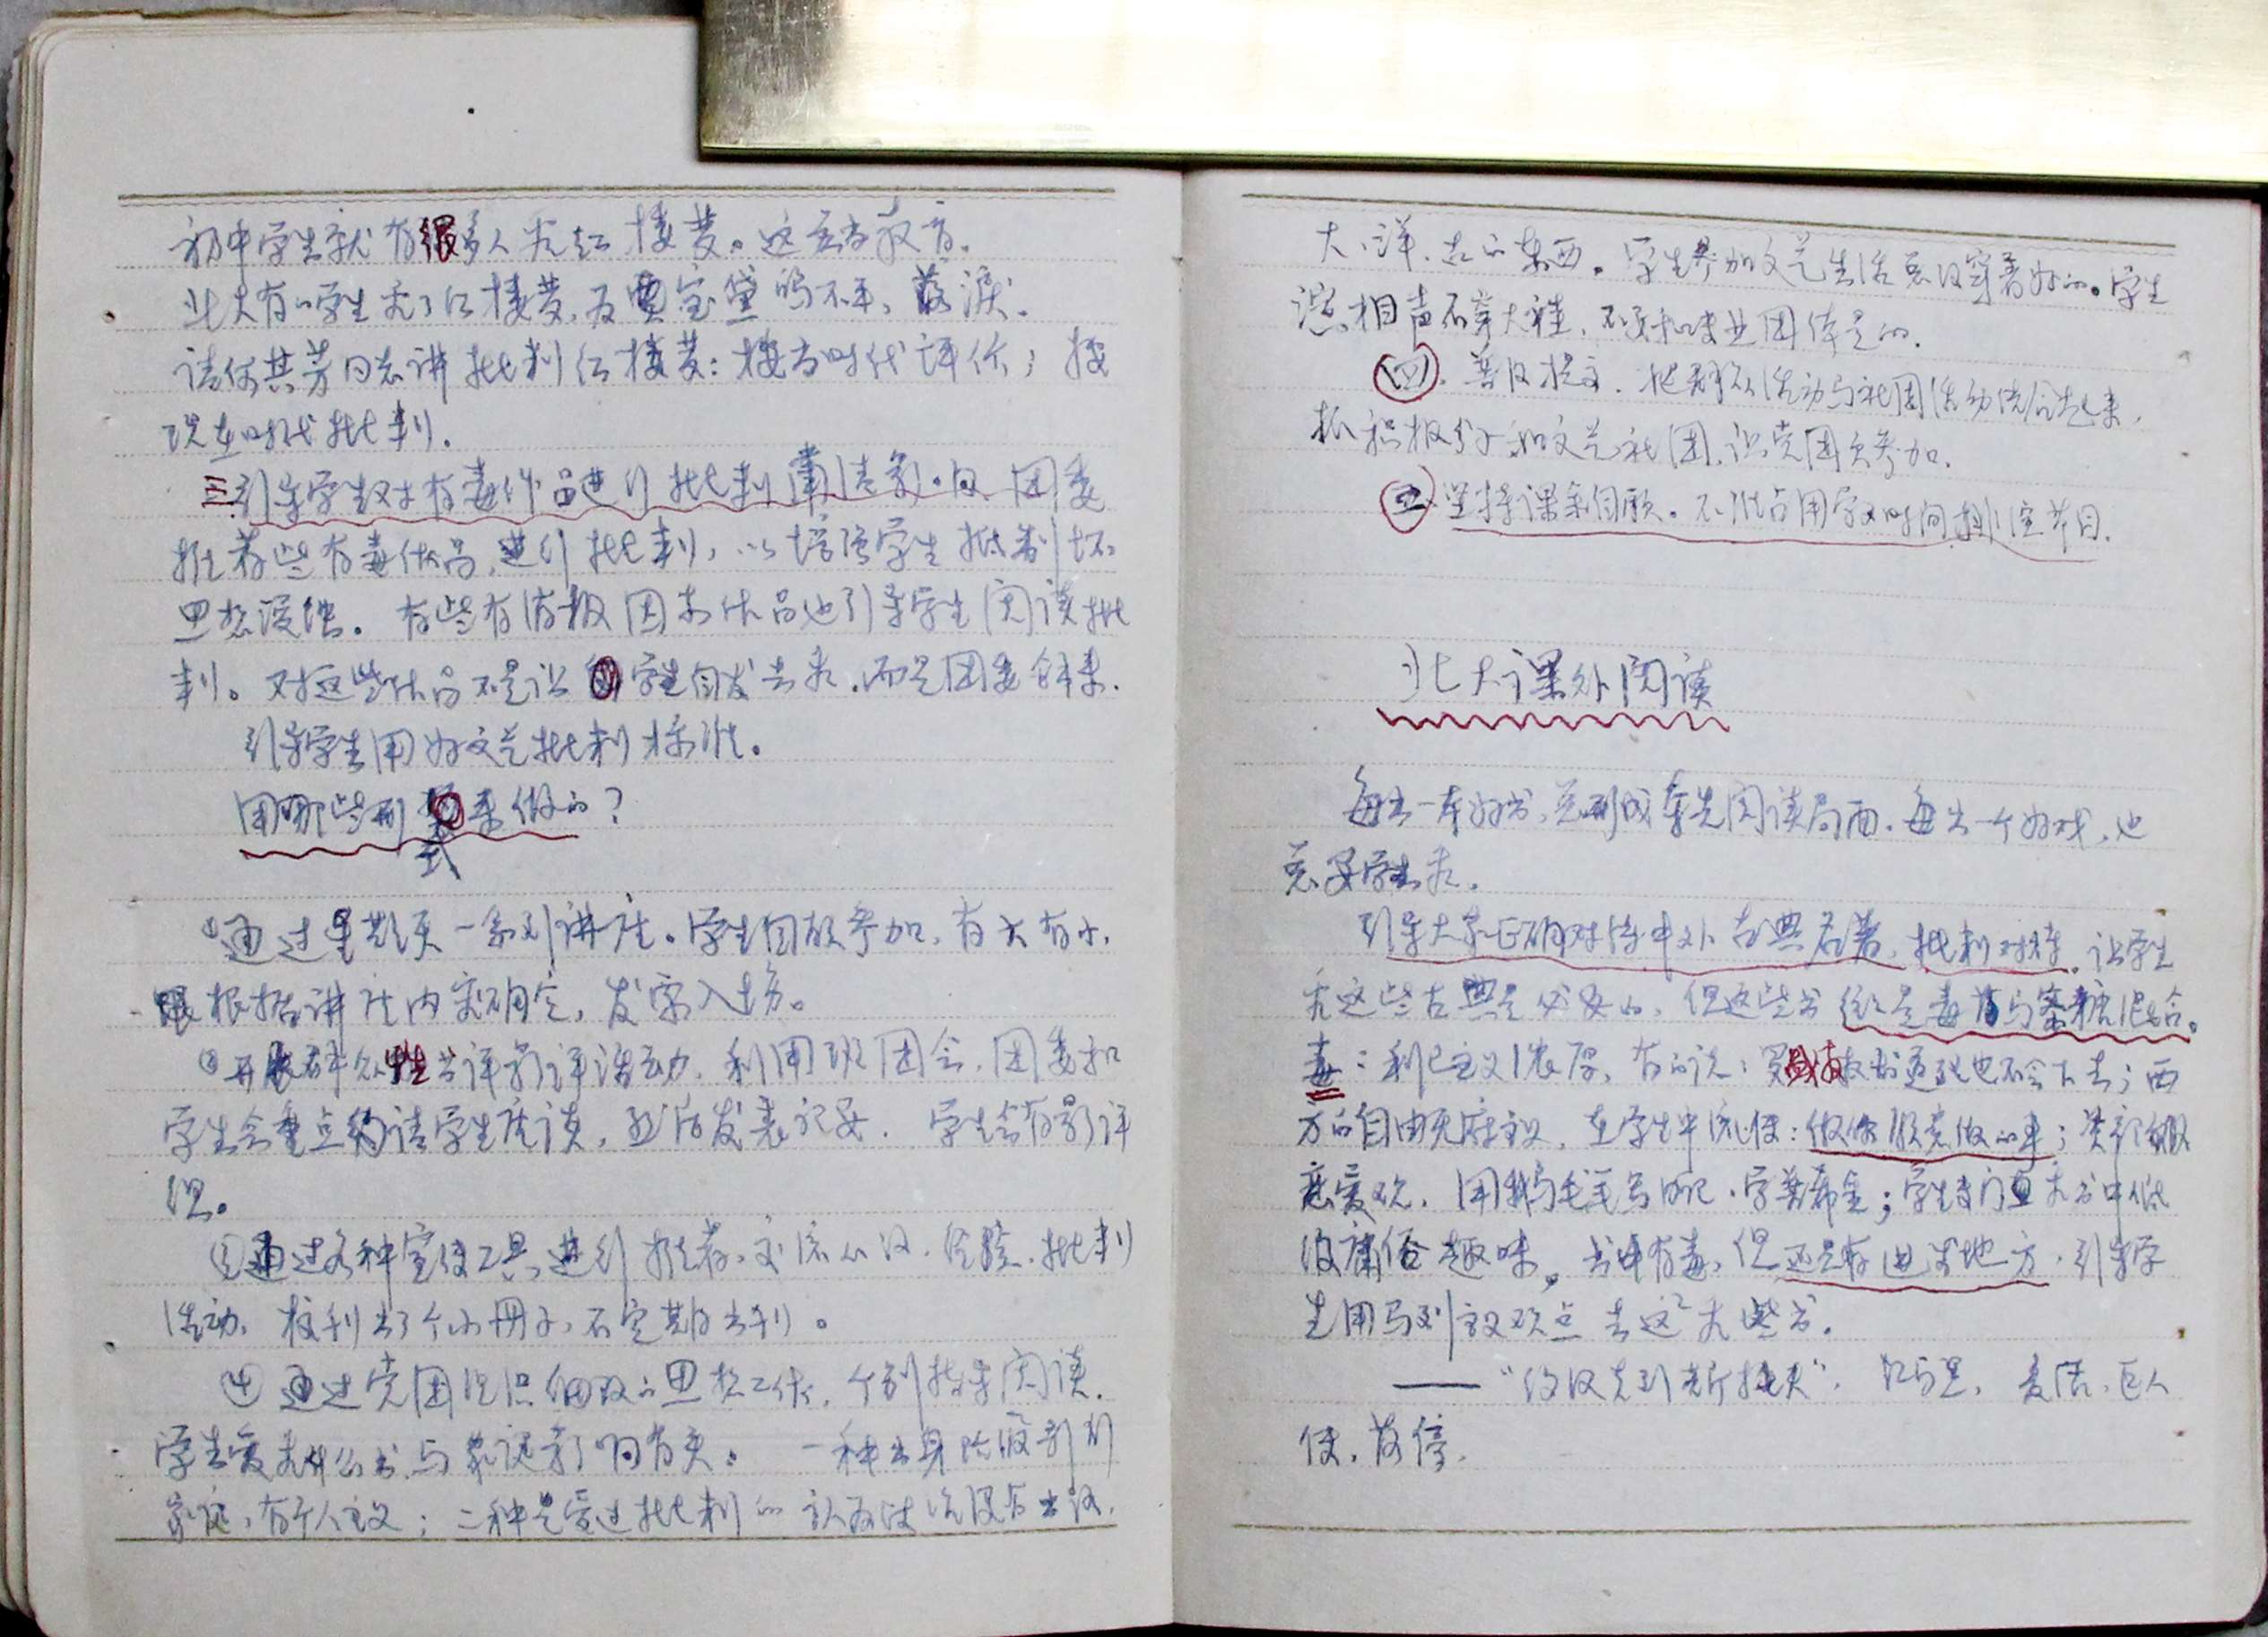 初中学生就有很多人看红楼梦。这要当教育。
北大有的学生看了红楼梦,为贾宝黛鸣不平,落泪。
请何其芳同志讲批判红楼梦:按当时代评价;按
现在时代批判。
三引导学生对有毒作品进行批判肃清影。由团委
推荐些有毒作品,进行批判,以增强学生抵制坏
思想侵蚀。有些有消极因素作品也引导学生阅读批
判。对这些作品不是让学生自发去看,而是团委会来.
引导学生用好文艺批判标准。
用哪些形式来做的?
①通过星期天一系列讲座。学生自愿参加,有大有小,
根据讲座内容确定,发票入场。
②开展群众性书评影评活动.利用班团会,团委和
学生会重点约请学生座谈,然后发表记要.学生会有影评
组。
③通过各种宣传工具,进行推荐,交流心得,经验,批判
活动,校刊出了个小册子,不定期出刊。
④通过党团组织细致的思想工作,个别指导阅读.
学生爱看什么书与家庭影响有关。一种出身阶级剥削
家庭,有个人主义;二种是受过批判的认为生活没有出路.
大、洋、古的东西。学生参加文艺生活总没穿着好的。学生
演相声不穿大褂,不要和专业团体是的.
(四).普及提高.把群众活动与社团活动结合起来,
抓积极分子和文艺社团,让党团员参加.
五.坚持课余自愿。不准占用学习时间排演节目.
北大课外阅读
每出一本好书,总形成争先阅读局面.每出一个好戏,也
总要学生看.
引导大家正确对待中外古典名著,批判对待.让学生
看这些古典是必要的,但这些书往往是毒药与蜜糖混合。
毒:利己主义浓厚,有的说:实教书道路也不会下去;西
方的自由无府主义,在学生中流传:做你愿意做的事;资产阶级
恋爱观.用鹅毛笔写日记.学普希金;学生专门查看书中低
级庸俗趣味。书中有毒,但还是有进步地方.引导学
生用马列主义观点去看这些书.
——“约汉克利斯朵夫”.红与黑,复活,巨人
传,茶馆.